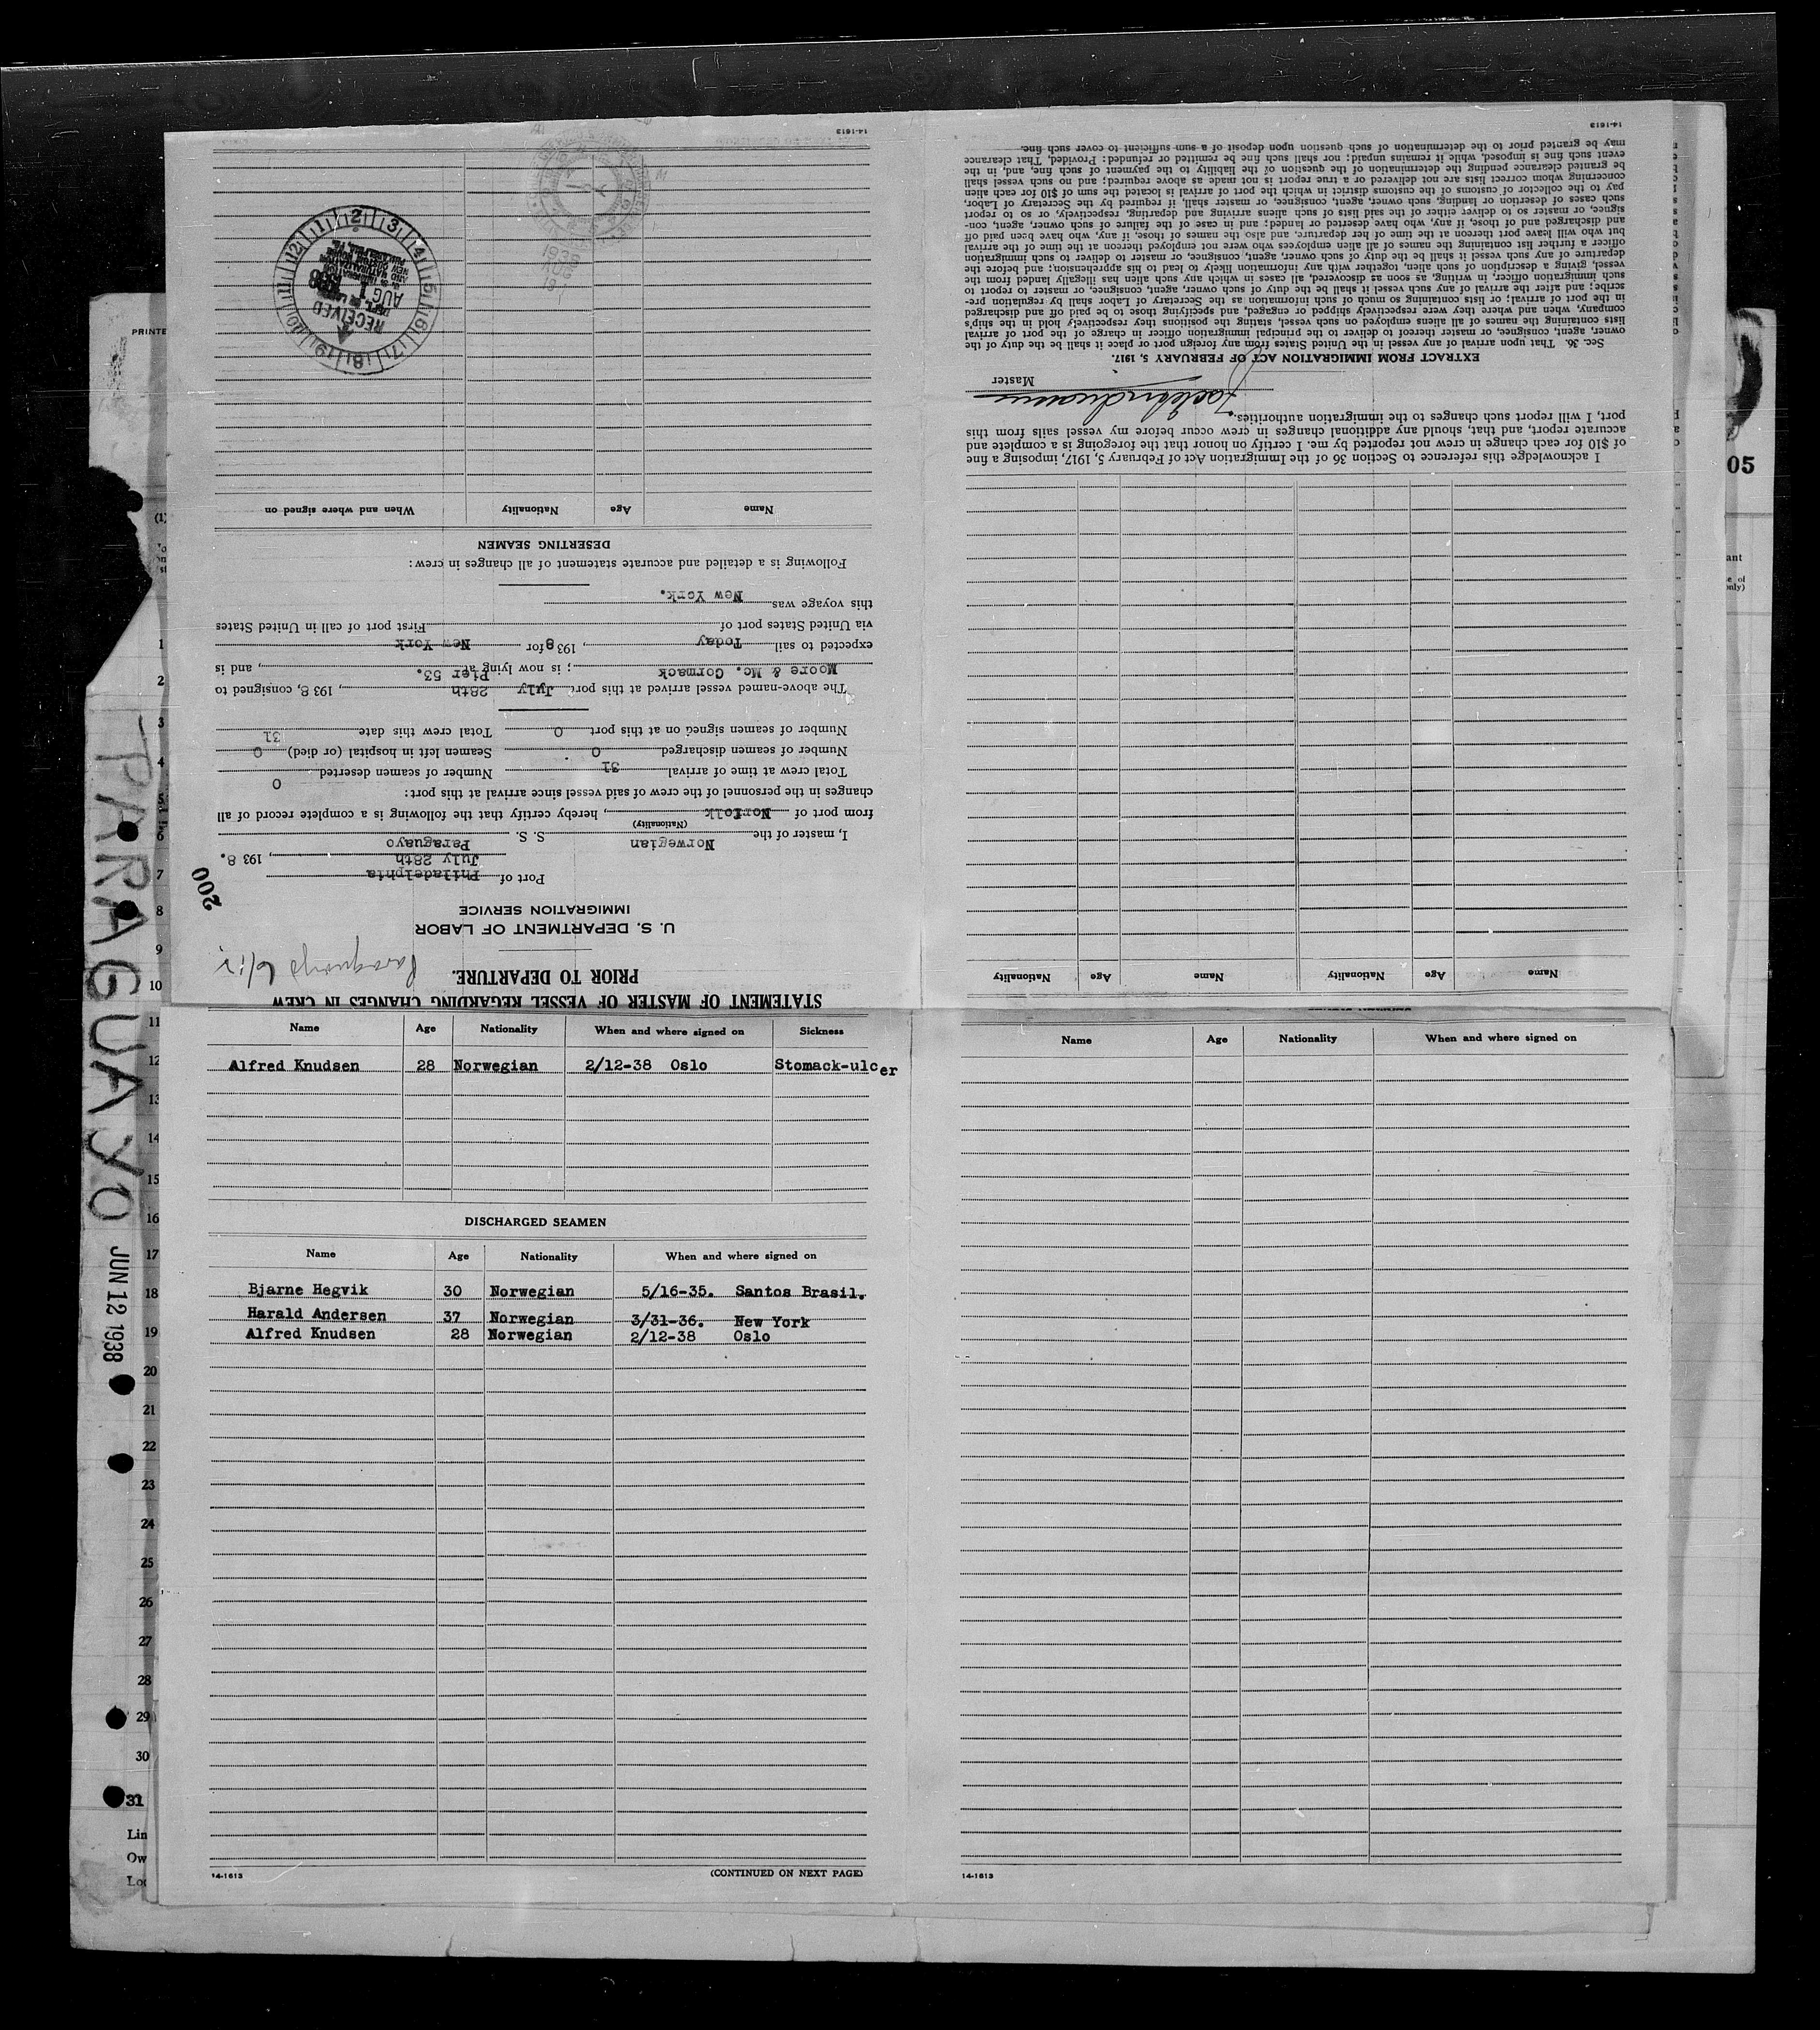 STATEMENT OF MASTER OF VESSEL REGARDING CHANGES IN CREW
PRIOR TO DEPARTURE.
U. S. DEPARTMENT OF LABOR
IMMIGRATION SERVICE
200
Port of Philadelphia
July 28th, 1938.
I, master of the Norwegian S. S. Paraguayo
(Nationality)
from port of Norfolk, hereby certify that the following is a complete record of all
changes in the personnel of the crew of said vessel since arrival at this port:
Total crew at time of arrival 31 Number of seamen deserted 0
Number of seamen discharged 0 Seamen left in hospital (or died) 0
Number of seamen signed on at this port 0 Total crew this date 31
The above-named vessel arrived at this port July 28th, 1938, consigned to
Moore & Mc. Cormack; is now lying at Pier 53., and is
expected to sail Today, 1938 for New York
via United States port of First port of call in United States
this voyage was New York.
Following is a detailed and accurate statement of all changes in crew:
DESERTING SEAMEN
Name Age Nationality When and where signed on
RECEIVED
AUG 1 1938
14-1613
Name Age Nationality Name Age Nationality
I acknowledge this reference to Section 36 of the Immigration Act of February 5, 1917, imposing a fine
of $10 for each change in crew not reported by me. I certify on honor that the foregoing is a complete and
accurate report, and that, should any additional changes in crew occur before my vessel sails from this
port, I will report such changes to the immigration authorities.
Master
EXTRACT FROM IMMIGRATION ACT OF FEBRUARY 5, 1917.
Sec. 36. That upon arrival of any vessel in the United States from any foreign port or place it shall be the duty of the
owner, agent, consignee, or master thereof to deliver to the principal immigration officer in charge of the port of arrival
lists containing the names of all aliens employed on such vessel, stating the positions they respectively hold in the ship's
company, when and where they were respectively shipped or engaged, and specifying those to be paid off and discharged
in the port of arrival; or lists containing so much of such information as the Secretary of Labor shall by regulation pre-
scribe; and after the arrival of any such vessel it shall be the duty of such owner, agent, consignee, or master to report to
such immigration officer, in writing, as soon as discovered, all cases in which any such alien has illegally landed from the
vessel, giving a description of such alien, together with any information likely to lead to his apprehension; and before the
departure of any such vessel it shall be the duty of such owner, agent, consignee, or master to deliver to such immigration
officer a further list containing the names of all alien employees who were not employed thereon at the time of the arrival
but who will leave port thereon at the time of her departure, and also the names of those, if any, who have been paid off
and discharged and of those, if any, who have deserted or landed; and in case of the failure of such owner, agent, con-
signee, or master so to deliver either of the said lists of such aliens arriving and departing, respectively, or so to report
such cases of desertion or landing, such owner, agent, consignee, or master shall, if required by the Secretary of Labor,
pay to the collector of customs of the customs district in which the port of arrival is located the sum of $10 for each alien
concerning whom correct lists are not delivered or a true report is not made as above required; and no such vessel shall
be granted clearance pending the determination of the question of the liability to the payment of such fine, and, in the
event such fine is imposed, while it remains unpaid; nor shall such fine be remitted or refunded: Provided, That clearance
may be granted prior to the determination of such question upon deposit of a sum sufficient to cover such fine.
14-1613
PRINTE
05
PARAGUAYO
JUN 12 1938
1
2
3
4
5
6
7
8
9
10
11
12
13
14
15
16
17
18
19
20
21
22
23
24
25
26
27
28
29
30
31
Lin
Ow
Name Age Nationality When and where signed on Sickness
Alfred Knudsen 28 Norwegian 2/12-38 Oslo Stomack-ulcer
DISCHARGED SEAMEN
Name Age Nationality When and where signed on
Bjarne Hegvik 30 Norwegian 5/16-35. Santos Brasil.
Harald Andersen 37 Norwegian 3/31-36. New York
Alfred Knudsen 28 Norwegian 2/12-38 Oslo
14-1613 (CONTINUED ON NEXT PAGE)
Name Age Nationality When and where signed on
14-1613